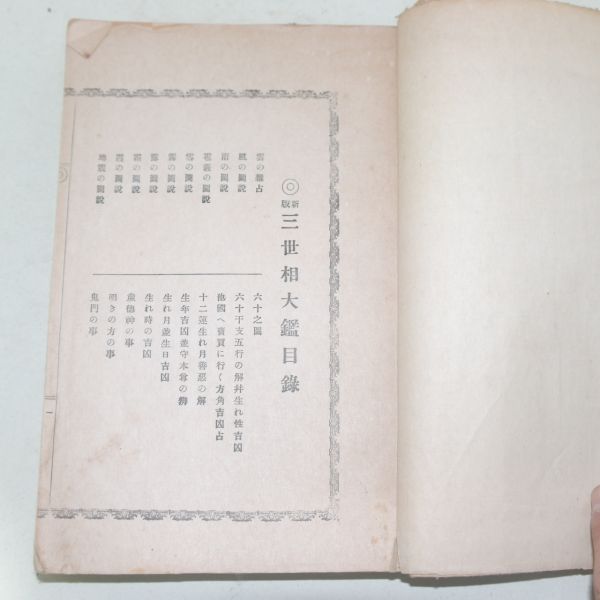 ◎新版三世相大鑑目錄
雲の雜占
風の圖說
雨の圖說
雹霰の圖說
雪の圖說
霧の圖說
露の圖說
霜の圖說
霞の圖說
地震の圖說
六十之圖
六十干支五行の解幷生れ性吉凶
他國へ賣買に行く方角吉凶占
十二運生れ月善惡の解
生年吉凶並守本尊の辯
生れ月並生日吉凶
生れ時の吉凶
歲德神の事
明きの方の事
鬼門の事
一